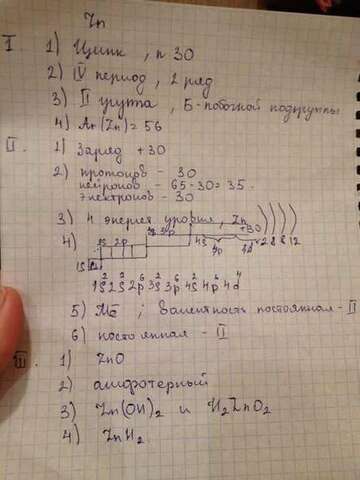 Zn
I. 1) Цинк, п 30
2) IV период, 2 ряд
3) II группа, Б-побочной подгруппы
4) Ar(Zn)=56
II. 1) Заряд +30
2) протонов - 30
нейронов - 65-30=35.
электронов - 30
3) 4 энерген уровня, Zn
+30 ) ) ) )
4) 1S 2S 2p 3S 3p 4S 4p 4d 2 8 8 12
1S² 2S² 2p⁶ 3S² 3p⁶ 4S² 4p⁶ 4d⁴
5) Ме ; Валентность постоянная - II
6) постоянная - II
III. 1) ZnO
2) амфотерный
3) Zn(OH)₂ и H₂ZnO₂
4) ZnH₂